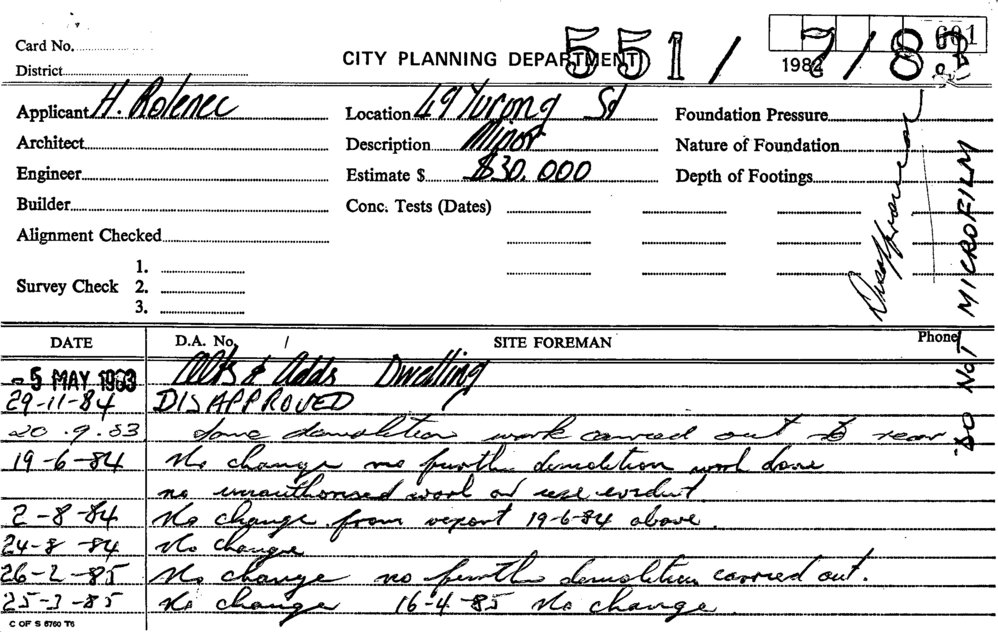 551/7/83
001
Card No.
District
CITY PLANNING DEPARTMENT
1982
Applicant H. Rolenec
Location 49 Yurong St
Foundation Pressure
Architect
Description Minor
Nature of Foundation
Engineer
Estimate $ $30,000
Depth of Footings
Builder
Conc. Tests (Dates)
Alignment Checked
Survey Check
1.
2.
3.
Disapproval
DO NOT MICROFILM
DATE D.A. No. / SITE FOREMAN Phone
- 5 MAY 1983 Alts & Adds Dwelling
29-11-84 DISAPPROVED
20.9.83 Some demolition work carried out to rear
19-6-84 No change no further demolition work done
no unauthorised work or use evident.
2-8-84 No change from report 19-6-84 above.
24-8-84 No change
26-2-85 No change no further demolition carried out.
25-3-85 No change 16-4-85 No change
C OF S 6760 T6